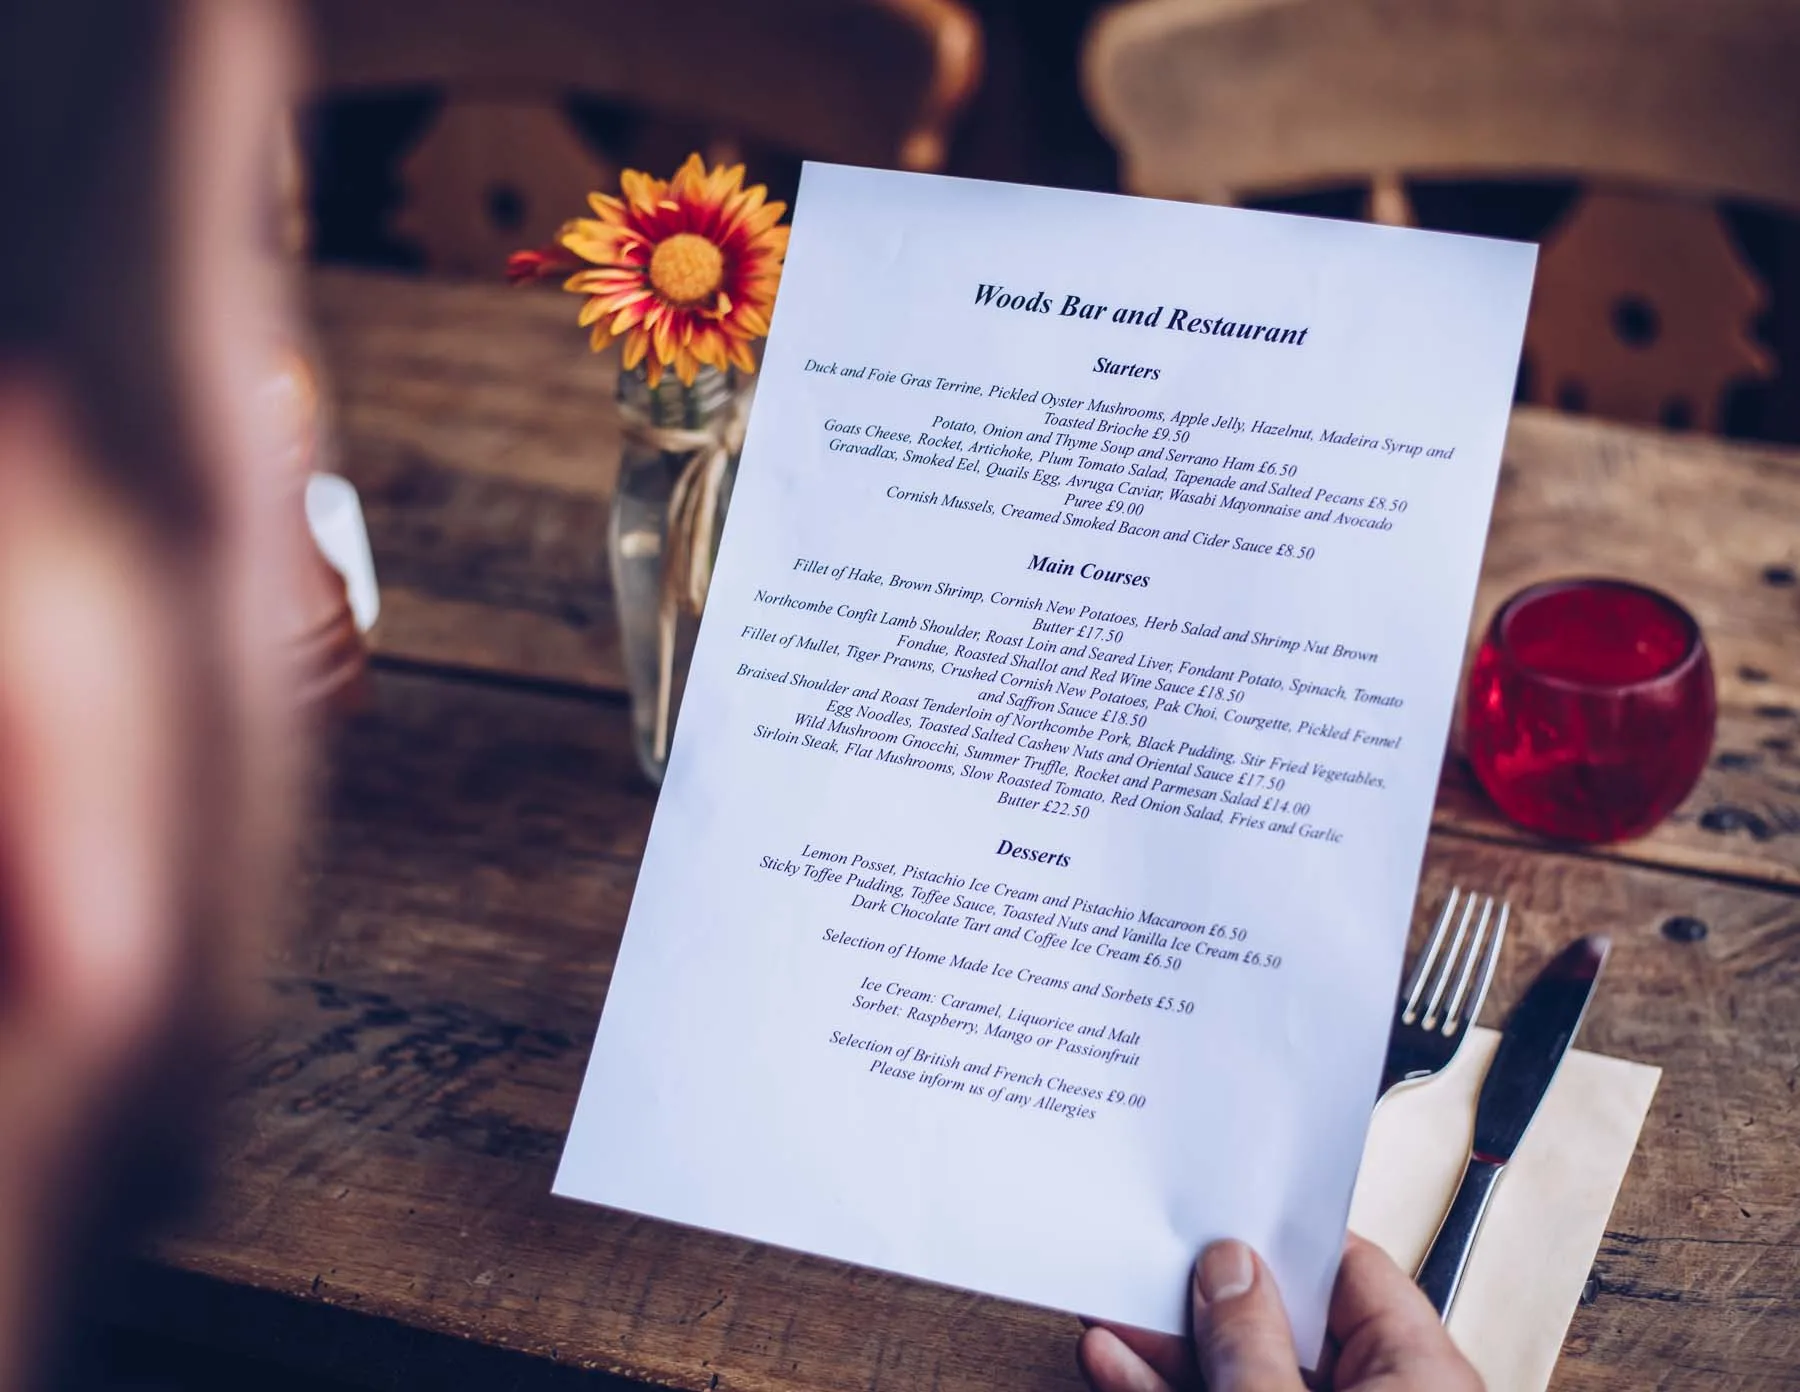 Woods Bar and Restaurant
Starters
Duck and Foie Gras Terrine, Pickled Oyster Mushrooms, Apple Jelly, Hazelnut, Madeira Syrup and
Toasted Brioche £9.50
Potato, Onion and Thyme Soup and Serrano Ham £6.50
Goats Cheese, Rocket, Artichoke, Plum Tomato Salad, Tapenade and Salted Pecans £8.50
Gravadlax, Smoked Eel, Quails Egg, Avruga Caviar, Wasabi Mayonnaise and Avocado
Puree £9.00
Cornish Mussels, Creamed Smoked Bacon and Cider Sauce £8.50
Main Courses
Fillet of Hake, Brown Shrimp, Cornish New Potatoes, Herb Salad and Shrimp Nut Brown
Butter £17.50
Northcombe Confit Lamb Shoulder, Roast Loin and Seared Liver, Fondant Potato, Spinach, Tomato
Fondue, Roasted Shallot and Red Wine Sauce £18.50
Fillet of Mullet, Tiger Prawns, Crushed Cornish New Potatoes, Pak Choi, Courgette, Pickled Fennel
and Saffron Sauce £18.50
Braised Shoulder and Roast Tenderloin of Northcombe Pork, Black Pudding, Stir Fried Vegetables,
Egg Noodles, Toasted Salted Cashew Nuts and Oriental Sauce £17.50
Wild Mushroom Gnocchi, Summer Truffle, Rocket and Parmesan Salad £14.00
Sirloin Steak, Flat Mushrooms, Slow Roasted Tomato, Red Onion Salad, Fries and Garlic
Butter £22.50
Desserts
Lemon Posset, Pistachio Ice Cream and Pistachio Macaroon £6.50
Sticky Toffee Pudding, Toffee Sauce, Toasted Nuts and Vanilla Ice Cream £6.50
Dark Chocolate Tart and Coffee Ice Cream £6.50
Selection of Home Made Ice Creams and Sorbets £5.50
Ice Cream: Caramel, Liquorice and Malt
Sorbet: Raspberry, Mango or Passionfruit
Selection of British and French Cheeses £9.00
Please inform us of any Allergies